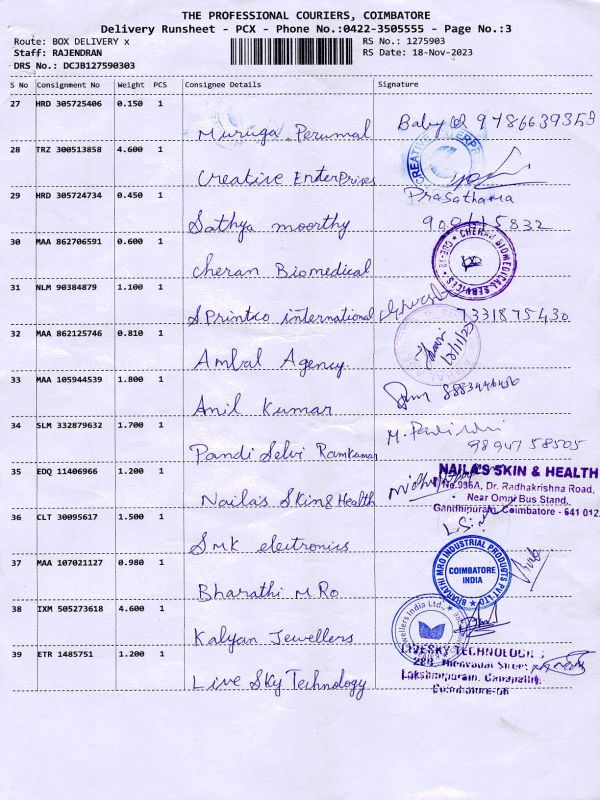 THE PROFESSIONAL COURIERS, COIMBATORE
Delivery Runsheet - PCX - Phone No.:0422-3505555 - Page No.:3
Route: BOX DELIVERY x
RS No.: 1275903
Staff: RAJENDRAN
RS Date: 18-Nov-2023
DRS No.: DCJB127590303
S No Consignment No Weight PCS Consignee Details Signature
27 HRD 305725406 0.150 1
Muruga Perumal Baby 9786639353
28 TRZ 300513858 4.600 1
Creative EnterPrises
29 HRD 305724734 0.450 1
Sathya moorthy
30 MAA 862706591 0.600 1
Cheran Biomedical
CHERAN BIOMEDICAL SERVICES
31 NLM 90384879 1.100 1
SPrintco international 7331875430
32 MAA 862125746 0.810 1
Ambal Agency
33 MAA 105944539 1.800 1
Anil Kumar
34 SLM 332879632 1.700 1
Pandi Selvi Ramkumar 98947 58505
35 EDQ 11406966 1.200 1
Naila's Skin & Health
NAILA'S SKIN & HEALTH
Dr. Radhakrishna Road,
Near Omni Bus Stand,
Gandhipuram, Coimbatore - 641 012
36 CLT 30095617 1.500 1
SMK electronics
37 MAA 107021127 0.980 1
Bharathi M Ro
BHARATHI MRO INDUSTRIAL PRODUCTS PVT LTD
COIMBATORE
INDIA
38 IXM 505273618 4.600 1
Kalyan Jewellers
39 ETR 1485751 1.200 1
Live Sky Technology